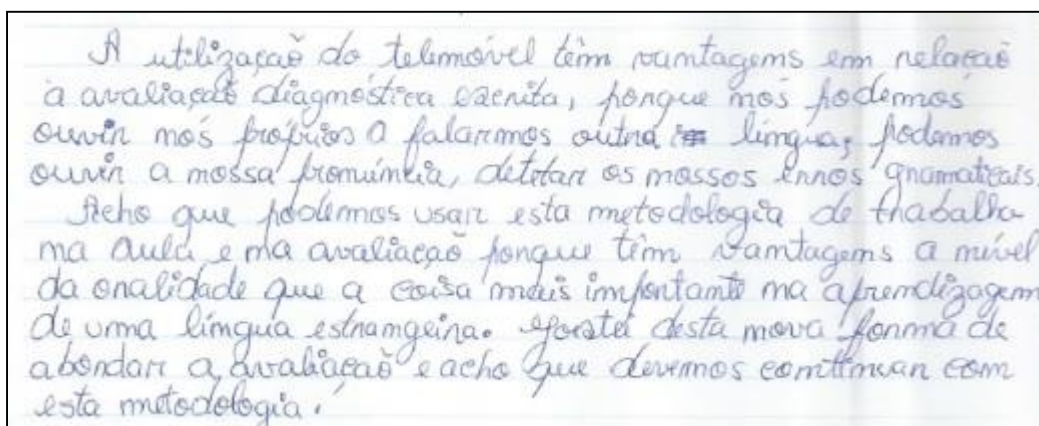 A utilização do telemóvel têm vantagens em relação
à avaliação diagnóstica escrita, porque nós podemos
ouvir nós próprios a falarmos outra língua, podemos
ouvir a nossa pronúncia, detetar os nossos erros gramaticais.
Acho que podemos usar esta metodologia de trabalho
na aula e na avaliação porque têm vantagens a nível
da oralidade que a coisa mais importante na aprendizagem
de uma língua estrangeira. Gostei desta nova forma de
abordar a avaliação e acho que devemos continuar com
esta metodologia.